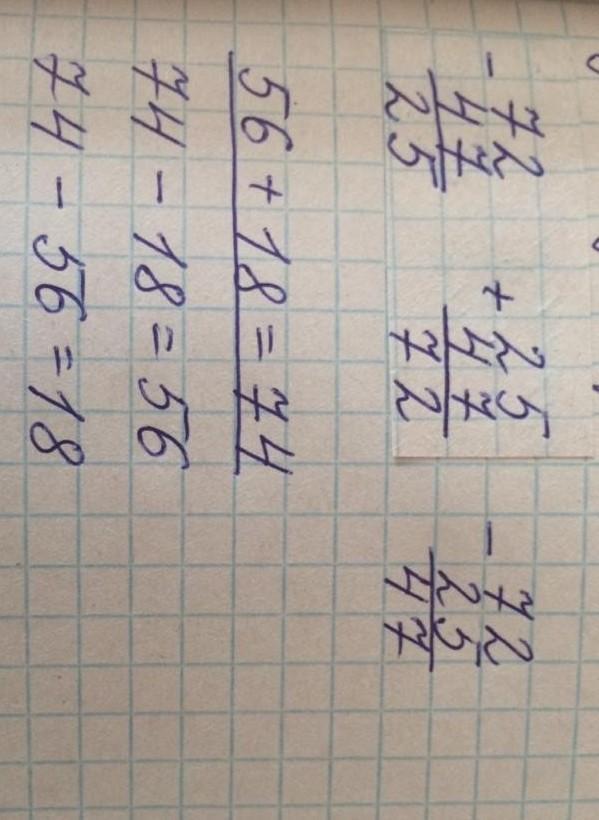 - 72 + 25 - 72
47 47 25
25 72 47
56 + 18 = 74
74 - 18 = 56
74 - 56 = 18